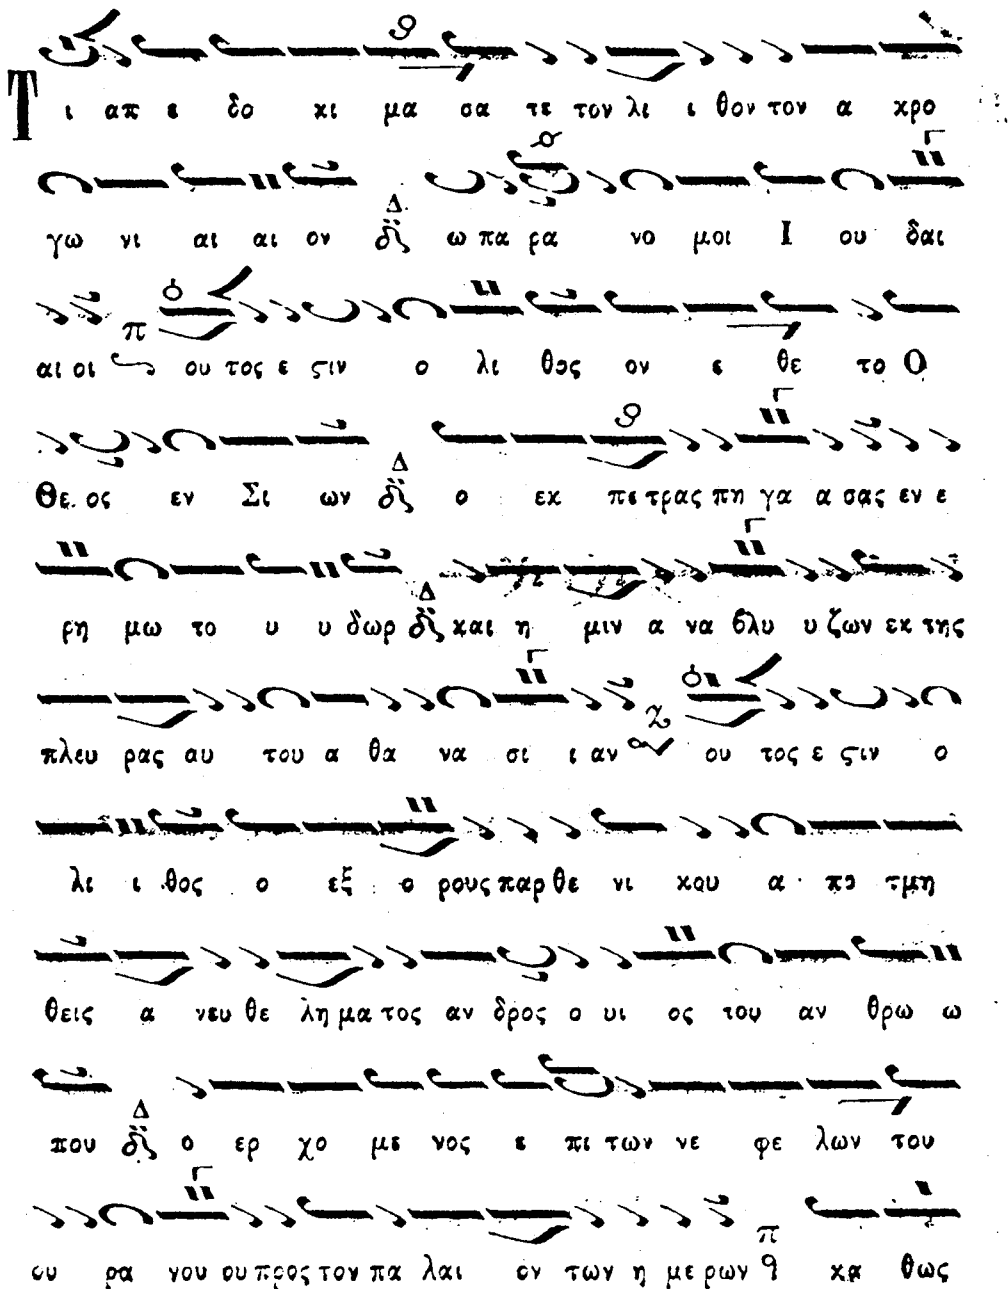 Τι απ ε δο κι μα σα τε τον λι ι θον τον α κρο
γω νι αι αι ον δι ω πα ρα νο μοι Ι ου δαι
αι οι ου τος ε ϛιν ο λι θος ον ε θε το Ο
Θε ος εν Σι ων δι ο εκ πε τρας πη γα α σας εν ε
ρη μω το υ υ δωρ δι και η μιν α να βλυ υ ζων εκ της
πλευ ρας αυ του α θα να σι ι αν ου τος ε ϛιν ο
λι ι θος ο εξ ο ρους παρ θε νι κου α πο τμη
θεις α νευ θε λη μα τος αν δρος ο υι ος του αν θρω ω
που δι ο ερ χο με νος ε πι των νε φε λων του
ου ρα νου ου προς τον πα λαι ον των η με ρων κα θως